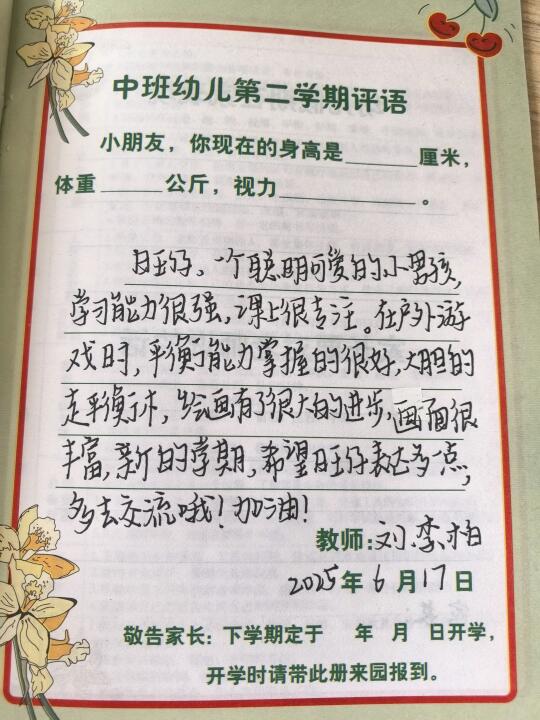 中班幼儿第二学期评语
小朋友，你现在的身高是______厘米，
体重______公斤，视力____________。
旺仔、一个聪明可爱的小男孩，
学习能力很强，课上很专注。在户外游
戏时，平衡能力掌握的很好，大胆的
走平衡木，绘画有了很大的进步，画面很
丰富，新的学期，希望旺仔表达多一点，
多去交流哦！加油！
教师：刘、李柏
2025年6月17日
敬告家长：下学期定于 年 月 日开学，
开学时请带此册来园报到。